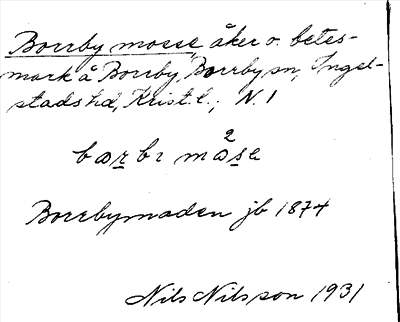 Borrby mosse, åker o. betes-
mark å Borrby, Borrby sn, Ingel-
stads hd, Krist. l.; N. 1
Borrbymaden jb 1874
Nils Nilsson 1931